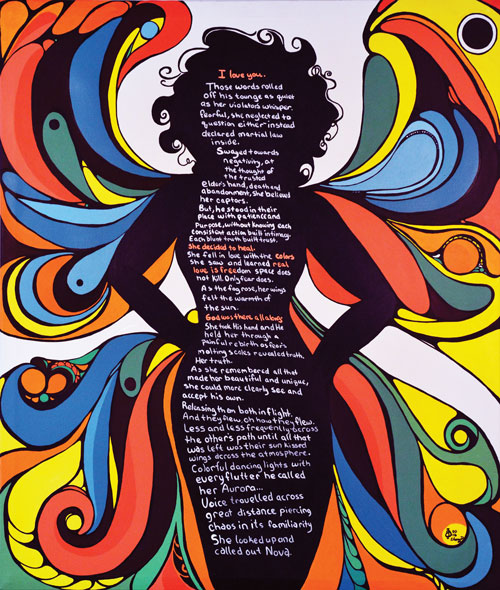 I love you.
Those words rolled
off his tounge as quiet
as her violators whisper.
Fearful, she neglected to
question either instead
declared martial law
inside.
Swayed towards
negativity, at
the thought of
the trusted
elder's hand, death and
abandonment, she believed
her captors.
But, he stood in their
place with patience and
Purpose, without knowing each
consistent action built intimacy.
Each blunt truth built trust.
She decided to heal.
She fell in love with the colors
she saw and learned real
love is freedom space does
not kill. Only fear does.
As the fog rose, her wings
felt the warmth of
the sun.
God was there all along.
She took His hand and He
held her through a
painful rebirth as fear's
molting scales revealed truth.
Her truth.
As she remembered all that
made her beautiful and unique,
she could more clearly see and
accept his own.
Releasing them both in flight.
And they flew oh how they flew.
Less and less frequently across
the other's path until all that
was left was their sun kissed
wings across the atmosphere.
Colorful dancing lights with
every flutter he called
her Aurora...
Voice travelled across
great distance piercing
chaos in its familiarity
She looked up and
called out Nova.